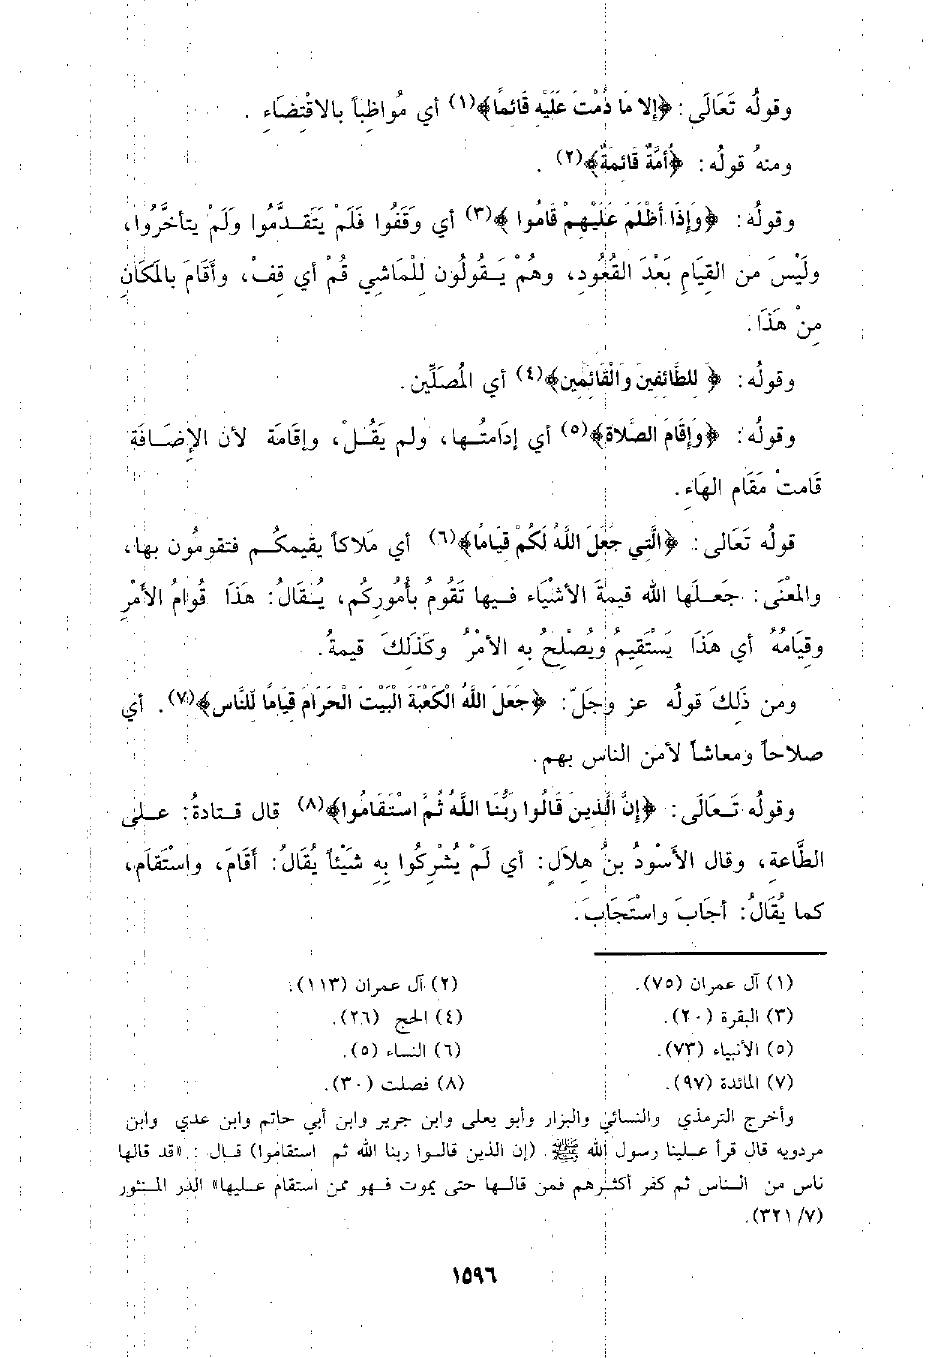 وقولُه تَعَالَى: ﴿إلا مَا دُمْتَ عَلَيْهِ قَائمًا﴾(١) أي مُواظِباً بالاقْتِضَاءِ .
ومنهُ قولُه: ﴿أُمَّةٌ قَائِمَةٌ﴾(٢) .
وقولُه: ﴿وَإِذَا أَظْلَمَ عَلَيْهِمْ قَامُوا ﴾(٣) أي وَقَفُوا فَلَمْ يَتَقَدمُوا وَلَمْ يتأخَّرُوا،
ولَيْسَ من القِيَامِ بَعْدَ القُعُودِ، وهُمْ يَقُولُون لِلْمَاشِي قُمْ أي قِفْ، وأقَامَ بالمَكَانِ
مِنْ هَذَا.
وقولُه: ﴿ لِلطَّائفِينَ وَالْقَائِمِين﴾(٤) أي المُصَلِّين.
وقولُه: ﴿وَإِقَامَ الصَّلاة﴾(٥) أي إدَامتُها، ولم يَقُلْ، وإقَامَة لأن الإِضَافَة
قَامتْ مَقَام الهَاءِ.
قولُه تَعَالى: ﴿الَّتِي جَعَلَ اللَّهُ لَكُمْ قِيَامًا﴾(٦) أي مَلاكاً يقيمكُم فتقومُون بها،
والمعْنَى: جَعَلَها الله قيمةَ الأشْيَاء فيها تَقُومُ بأُمُورِكُم، يُقَالُ: هَذَا قُوامُ الأمْرِ
وقيَامُهُ أي هَذَا يَسْتَقِيمُ ويُصْلِحُ بِهِ الأمْرُ وكَذَلِكَ قيمةُ.
ومن ذَلِكَ قولُه عز وجَلّ: ﴿جَعَلَ اللَّهُ الْكَعْبَةَ الْبَيْتَ الْحَرَامَ قِيَامًا لِلنَّاس﴾(٧). أي
صلاحاً ومعاشاً لأمن الناس بهم.
وقولُه تَعَالَى: ﴿إِنَّ الَّذِينَ قَالُوا رَبُّنَا اللَّهُ ثُمَّ اسْتَقَامُوا﴾(٨) قال قتادةُ: على
الطَّاعةِ، وقال الأسْودُ بنُ هِلاَلٍ: أي لَمْ يُشْرِكُوا بِهِ شَيْئاً يُقَالُ: أقَامَ، واستْقَام،
كما يُقَالُ: أجَابَ واسْتَجَابَ.
(١) آل عمران (٧٥). (٢) آل عمران (١١٣).
(٣) البقرة (٢٠). (٤) الحج (٢٦).
(٥) الأنبياء (٧٣). (٦) النساء (٥).
(٧) المائدة (٩٧). (٨) فصلت (٣٠).
وأخرج الترمذي والنسائي والبزار وأبو يعلى وابن جرير وابن أبي حاتم وابن عدي وابن
مردويه قال قرأ علينا رسول الله ﷺ. (إن الذين قالوا ربنا الله ثم استقاموا) قال : «قد قالها
ناس من الناس ثم كفر أكثرهم فمن قالها حتى يموت فهو ممن استقام عليها» الدر المنثور
(٣٢١/٧).
١٥٩٦